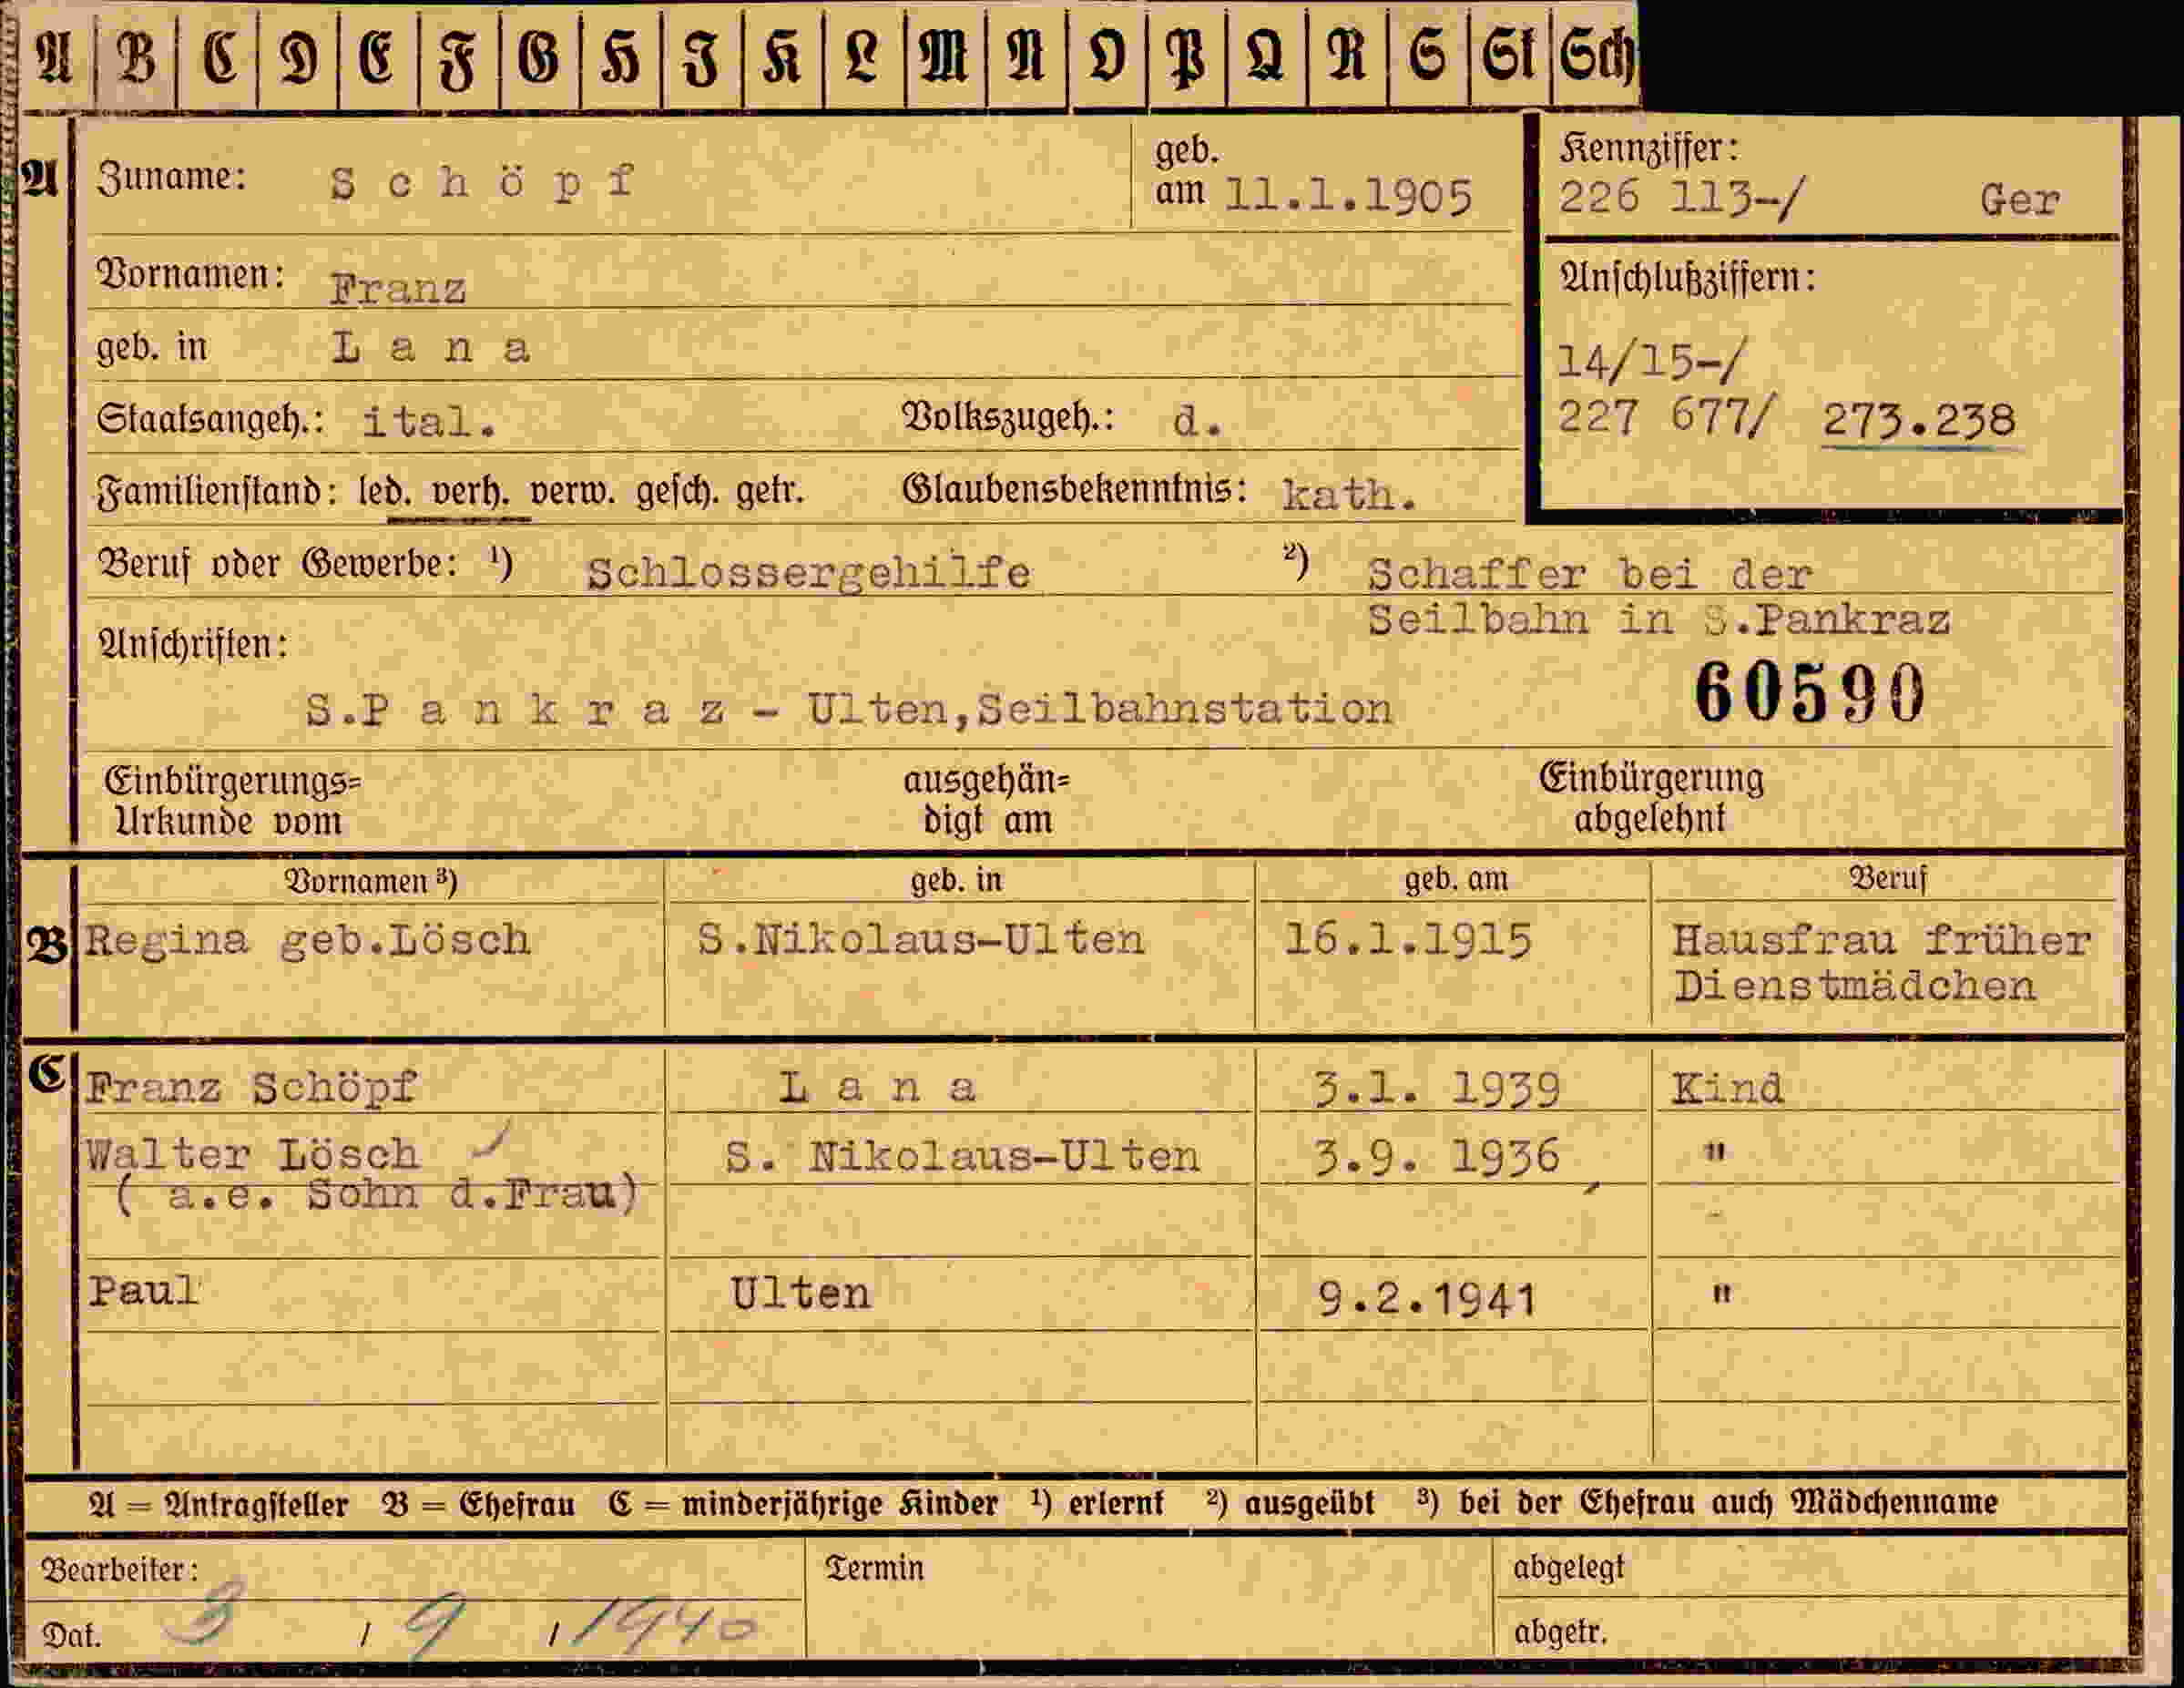 A B C D E F G H I K L M N O P Q R S St Sch
A Zuname: Schöpf geb. am 11.1.1905 Kennziffer:
226 113-/ Ger
Vornamen: Franz Anschlußziffern:
geb. in Lana 14/15-/
Staatsangeh.: ital. Volkszugeh.: d. 227 677/ 273.238
Familienstand: led. verh. verw. gesch. getr. Glaubensbekenntnis: kath.
Beruf oder Gewerbe: ¹) Schlossergehilfe ²) Schaffer bei der
Seilbahn in S.Pankraz
Anschriften:
S.Pankraz - Ulten,Seilbahnstation 60590
Einbürgerungs= ausgehän= Einbürgerung
Urkunde vom digt am abgelehnt
Vornamen ³) geb. in geb. am Beruf
B Regina geb.Lösch S.Nikolaus-Ulten 16.1.1915 Hausfrau früher
Dienstmädchen
C Franz Schöpf Lana 3.1. 1939 Kind
Walter Lösch S. Nikolaus-Ulten 3.9. 1936 "
( a.e. Sohn d.Frau)
Paul Ulten 9.2.1941 "
A = Antragsteller B = Ehefrau C = minderjährige Kinder ¹) erlernt ²) ausgeübt ³) bei der Ehefrau auch Mädchenname
Bearbeiter: Termin abgelegt
Dat. 3 / 9 / 1940 abgetr.